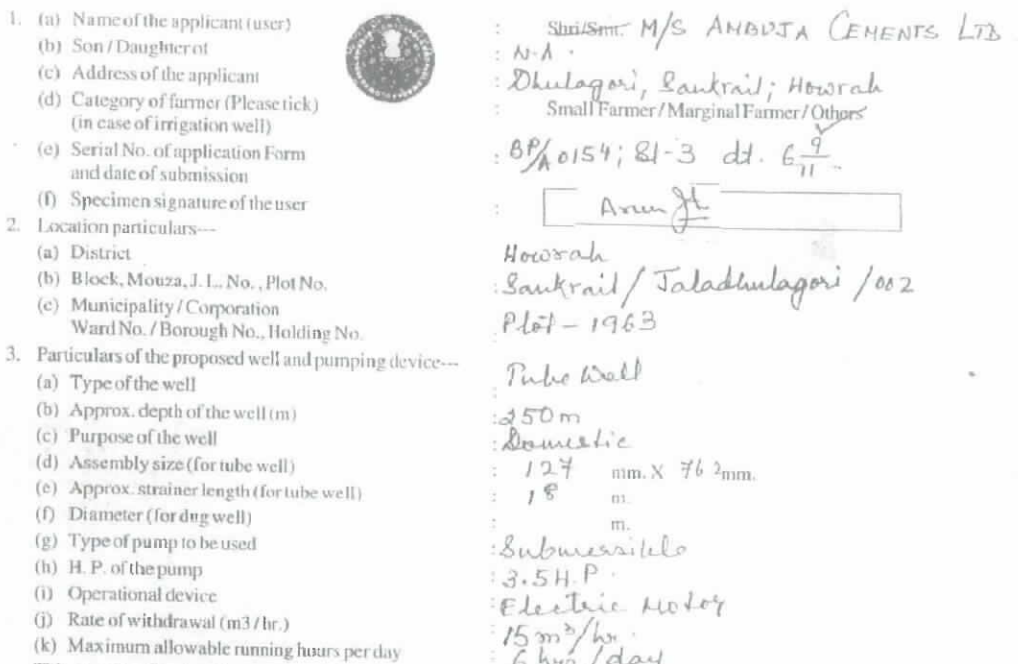 1. (a) Name of the applicant (user) : Shri/Smt. M/S AMBUJA CEMENTS LTD
(b) Son / Daughter of : N.A.
(c) Address of the applicant : Dhulagori, Sankrail; Howrah
(d) Category of farmer (Please tick) : Small Farmer / Marginal Farmer / Others
(in case of irrigation well)
(e) Serial No. of application Form : BP/A 0154; Sl-3 dt. 6 9/11.
and date of submission
(f) Specimen signature of the user : Arun
2. Location particulars---
(a) District Howrah
(b) Block, Mouza, J. L. No., Plot No. : Sankrail / Jaladhulagori / 002
(c) Municipality / Corporation Plot - 1963
Ward No. / Borough No., Holding No.
3. Particulars of the proposed well and pumping device---
(a) Type of the well : Tube Well
(b) Approx. depth of the well (m) : 250 m
(c) Purpose of the well : Domestic
(d) Assembly size (for tube well) : 127 mm. X 76.2 mm.
(e) Approx. strainer length (for tube well) : 18 m.
(f) Diameter (for dug well) : m.
(g) Type of pump to be used : Submersible
(h) H. P. of the pump : 3.5 H.P.
(i) Operational device : Electric Motor
(j) Rate of withdrawal (m3 / hr.) : 15 m³/hr.
(k) Maximum allowable running hours per day : 6 hrs/day